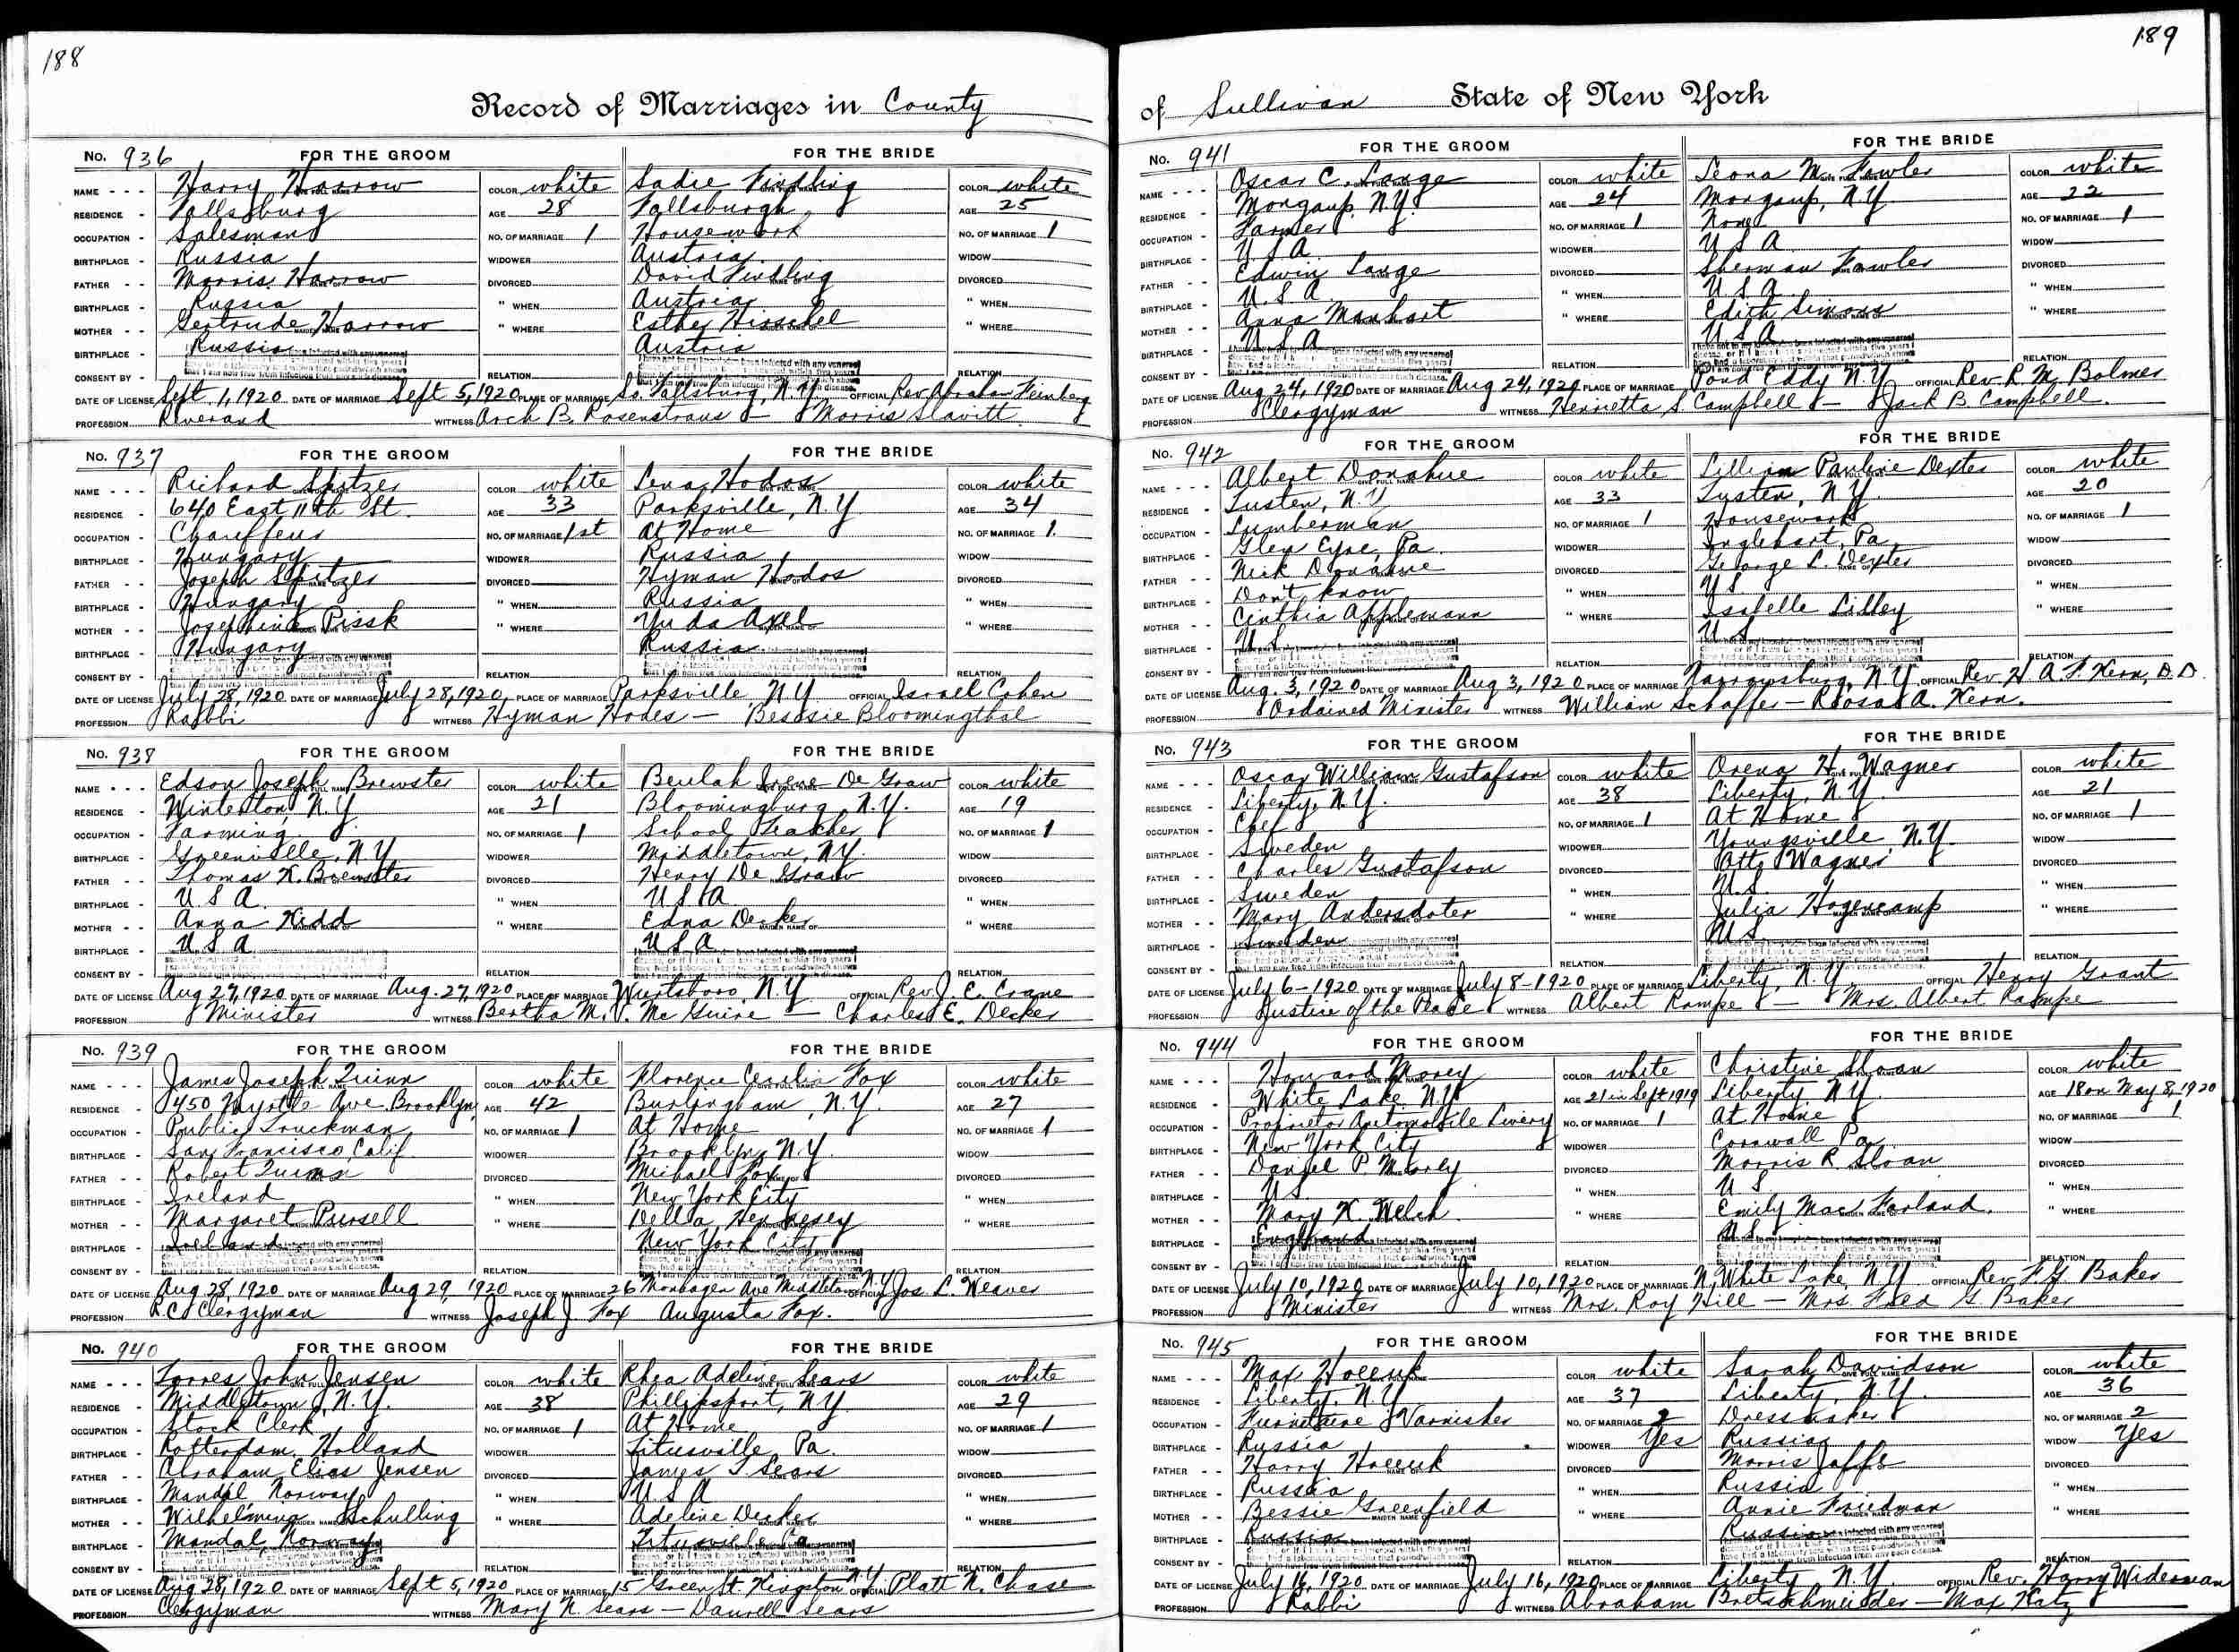 188
189
Record of Marriages in County
of Sullivan State of New York
No. 936 FOR THE GROOM FOR THE BRIDE
NAME Harry Harrow COLOR white Sadie Findling COLOR white
RESIDENCE Fallsburg AGE 28 Fallsburgh AGE 25
OCCUPATION Salesman NO. OF MARRIAGE 1 Housework NO. OF MARRIAGE 1
BIRTHPLACE Russia WIDOWER Austria WIDOW
FATHER Morris Harrow DIVORCED David Findling DIVORCED
BIRTHPLACE Russia " WHEN Austria " WHEN
MOTHER Gertrude Harrow " WHERE Esther Hisschel " WHERE
BIRTHPLACE Russia Austria
CONSENT BY RELATION RELATION
DATE OF LICENSE Sept 1, 1920 DATE OF MARRIAGE Sept 5, 1920 PLACE OF MARRIAGE So. Fallsburg, N.Y. OFFICIAL Rev Abraham Feinberg
PROFESSION Reverand WITNESS Arch B. Rosenstraus - Morris Slavitt
No. 937 FOR THE GROOM FOR THE BRIDE
NAME Richard Spitzer COLOR white Lena Hodos COLOR white
RESIDENCE 640 East 11th St. AGE 33 Parksville, N.Y. AGE 34
OCCUPATION Chauffeur NO. OF MARRIAGE 1st At Home NO. OF MARRIAGE 1.
BIRTHPLACE Hungary WIDOWER Russia WIDOW
FATHER Joseph Spitzer DIVORCED Hyman Hodos DIVORCED
BIRTHPLACE Hungary " WHEN Russia " WHEN
MOTHER Josephine Pissk " WHERE Yuda Axel " WHERE
BIRTHPLACE Hungary Russia
CONSENT BY RELATION RELATION
DATE OF LICENSE July 28, 1920 DATE OF MARRIAGE July 28, 1920 PLACE OF MARRIAGE Parksville, N.Y OFFICIAL Israel Cohen
PROFESSION Rabbi WITNESS Hyman Hodes - Bessie Bloomingthal
No. 938 FOR THE GROOM FOR THE BRIDE
NAME Edson Joseph Brewster COLOR white Beulah Irene De Graw COLOR white
RESIDENCE Winterton, N.Y AGE 21 Bloomingburg, N.Y. AGE 19
OCCUPATION Farming NO. OF MARRIAGE 1 School Teacher NO. OF MARRIAGE 1
BIRTHPLACE Greenville, N.Y WIDOWER Middletown, N.Y. WIDOW
FATHER Thomas K. Brewster DIVORCED Henry De Graw DIVORCED
BIRTHPLACE U S A. " WHEN U S A " WHEN
MOTHER Anna Kidd " WHERE Edna Decker " WHERE
BIRTHPLACE U. S. A U S A
CONSENT BY RELATION RELATION
DATE OF LICENSE Aug 27, 1920 DATE OF MARRIAGE Aug. 27, 1920 PLACE OF MARRIAGE Wurtsboro, N.Y OFFICIAL Rev. J. E. Crane
PROFESSION Minister WITNESS Bertha M. V. Mc Guire - Charles E. Decker
No. 939 FOR THE GROOM FOR THE BRIDE
NAME James Joseph Quinn COLOR white Florence Cecelia Fox COLOR white
RESIDENCE 450 Myrtle Ave. Brooklyn AGE 42 Burlingham, N.Y. AGE 27
OCCUPATION Public Truckman NO. OF MARRIAGE 1 At Home NO. OF MARRIAGE 1
BIRTHPLACE San Francisco Calif WIDOWER Brooklyn, N.Y. WIDOW
FATHER Robert Quinn DIVORCED Michael Fox DIVORCED
BIRTHPLACE Ireland " WHEN New York City " WHEN
MOTHER Margaret Pursell " WHERE Della Hennesey " WHERE
BIRTHPLACE Ireland New York City
CONSENT BY RELATION RELATION
DATE OF LICENSE Aug 28, 1920 DATE OF MARRIAGE Aug 29, 1920 PLACE OF MARRIAGE 26 Monhagen Ave Middletown N.Y OFFICIAL Jos. L. Weaver
PROFESSION R.C. Clergyman WITNESS Joseph J. Fox Augusta Fox.
No. 940 FOR THE GROOM FOR THE BRIDE
NAME Torres John Jensen COLOR white Rhea Adeline Sears COLOR white
RESIDENCE Middletown, N.Y. AGE 38 Phillipsport, N.Y AGE 29
OCCUPATION Stock Clerk NO. OF MARRIAGE 1 At Home NO. OF MARRIAGE 1
BIRTHPLACE Rotterdam, Holland WIDOWER Titusville, Pa. WIDOW
FATHER Abraham Elias Jensen DIVORCED James T Sears DIVORCED
BIRTHPLACE Mandal Norway " WHEN U.S.A " WHEN
MOTHER Wilhelmina Schulling " WHERE Adeline Decker " WHERE
BIRTHPLACE Mandal, Norway Titusville Pa
CONSENT BY RELATION RELATION
DATE OF LICENSE Aug 28, 1920 DATE OF MARRIAGE Sept 5, 1920 PLACE OF MARRIAGE 15 Green St. Kingston N.Y. OFFICIAL Platt N. Chase
PROFESSION Clergyman WITNESS Mary N. Sears - Daurell Sears
No. 941 FOR THE GROOM FOR THE BRIDE
NAME Oscar C. Lange COLOR white Leona M. Fowler COLOR white
RESIDENCE Mongaup, N.Y. AGE 24 Mongaup, N.Y. AGE 22
OCCUPATION Farmer NO. OF MARRIAGE 1 None NO. OF MARRIAGE 1
BIRTHPLACE U S A. WIDOWER U S A WIDOW
FATHER Edwin Lange DIVORCED Sherman Fowler DIVORCED
BIRTHPLACE U.S.A. " WHEN U S A " WHEN
MOTHER Anna Manhart " WHERE Edith Simons " WHERE
BIRTHPLACE U S A U S A
CONSENT BY RELATION RELATION
DATE OF LICENSE Aug 24, 1920 DATE OF MARRIAGE Aug 24, 1920 PLACE OF MARRIAGE Pond Eddy N.Y OFFICIAL Rev. R. M. Bolmer
PROFESSION Clergyman WITNESS Henrietta S. Campbell - Jack B. Campbell.
No. 942 FOR THE GROOM FOR THE BRIDE
NAME Albert Donahue COLOR white Lillian Pauline Dexter COLOR white
RESIDENCE Tusten, N.Y AGE 33 Tusten, N.Y. AGE 20
OCCUPATION Lumberman NO. OF MARRIAGE 1 Housework NO. OF MARRIAGE 1
BIRTHPLACE Glen Eyre, Pa. WIDOWER Inglehart, Pa. WIDOW
FATHER Nick Donahue DIVORCED George L. Dexter DIVORCED
BIRTHPLACE Don't know " WHEN U S " WHEN
MOTHER Cinthia Applemann " WHERE Isabelle Lilley " WHERE
BIRTHPLACE U.S. U S
CONSENT BY RELATION RELATION
DATE OF LICENSE Aug. 3, 1920 DATE OF MARRIAGE Aug 3, 1920 PLACE OF MARRIAGE Narrowsburg, N.Y. OFFICIAL Rev. H. A. F. Kern, D.D.
PROFESSION Ordained Minister WITNESS William Schaffer - Roosa A. Kern.
No. 943 FOR THE GROOM FOR THE BRIDE
NAME Oscar William Gustafson COLOR white Orena H. Wagner COLOR white
RESIDENCE Liberty, N.Y. AGE 38 Liberty, N.Y. AGE 21
OCCUPATION Chef NO. OF MARRIAGE 1 At Home NO. OF MARRIAGE 1
BIRTHPLACE Sweden WIDOWER Youngsville, N.Y. WIDOW
FATHER Charles Gustafson DIVORCED Otto Wagner DIVORCED
BIRTHPLACE Sweden " WHEN U.S. " WHEN
MOTHER Mary Andersdoter " WHERE Julia Hogencamp " WHERE
BIRTHPLACE Sweden U S.
CONSENT BY RELATION RELATION
DATE OF LICENSE July 6-1920 DATE OF MARRIAGE July 8-1920 PLACE OF MARRIAGE Liberty, N.Y OFFICIAL Henry Grant
PROFESSION Justice of the Peace WITNESS Albert Rampe - Mrs. Albert Rampe
No. 944 FOR THE GROOM FOR THE BRIDE
NAME Howard Morey COLOR white Christine Sloan COLOR white
RESIDENCE White Lake N.Y AGE 21 in Sept 1919 Liberty N.Y. AGE 18 on May 8, 1920
OCCUPATION Proprietor Automobile Livery NO. OF MARRIAGE 1 At Home NO. OF MARRIAGE 1
BIRTHPLACE New York City WIDOWER Cornwall Pa. WIDOW
FATHER Daniel P. Morey DIVORCED Morris R. Sloan DIVORCED
BIRTHPLACE U S. " WHEN U S " WHEN
MOTHER Mary K. Welch. " WHERE Emily Mac Farland. " WHERE
BIRTHPLACE England U S
CONSENT BY RELATION RELATION
DATE OF LICENSE July 10, 1920 DATE OF MARRIAGE July 10, 1920 PLACE OF MARRIAGE N. White Lake, N.Y OFFICIAL Rev. F. G. Baker
PROFESSION Minister WITNESS Mrs. Roy Hill - Mrs. Fred G. Baker
No. 945 FOR THE GROOM FOR THE BRIDE
NAME Max COLOR white Sarah Davidson COLOR white
RESIDENCE Liberty, N.Y AGE 37 Liberty, N.Y. AGE 36
OCCUPATION Furniture Varnisher NO. OF MARRIAGE 2 Dressmaker NO. OF MARRIAGE 2
BIRTHPLACE Russia WIDOWER Yes Russia WIDOW Yes
FATHER Harry DIVORCED Morris Jaffe DIVORCED
BIRTHPLACE Russia " WHEN Russia " WHEN
MOTHER Bessie Greenfield " WHERE Annie Friedman " WHERE
BIRTHPLACE Russia Russia
CONSENT BY RELATION RELATION
DATE OF LICENSE July 16, 1920 DATE OF MARRIAGE July 16, 1920 PLACE OF MARRIAGE Liberty N.Y. OFFICIAL Rev. Harry Widerman
PROFESSION Rabbi WITNESS Abraham Bretschmeider - Max Katz